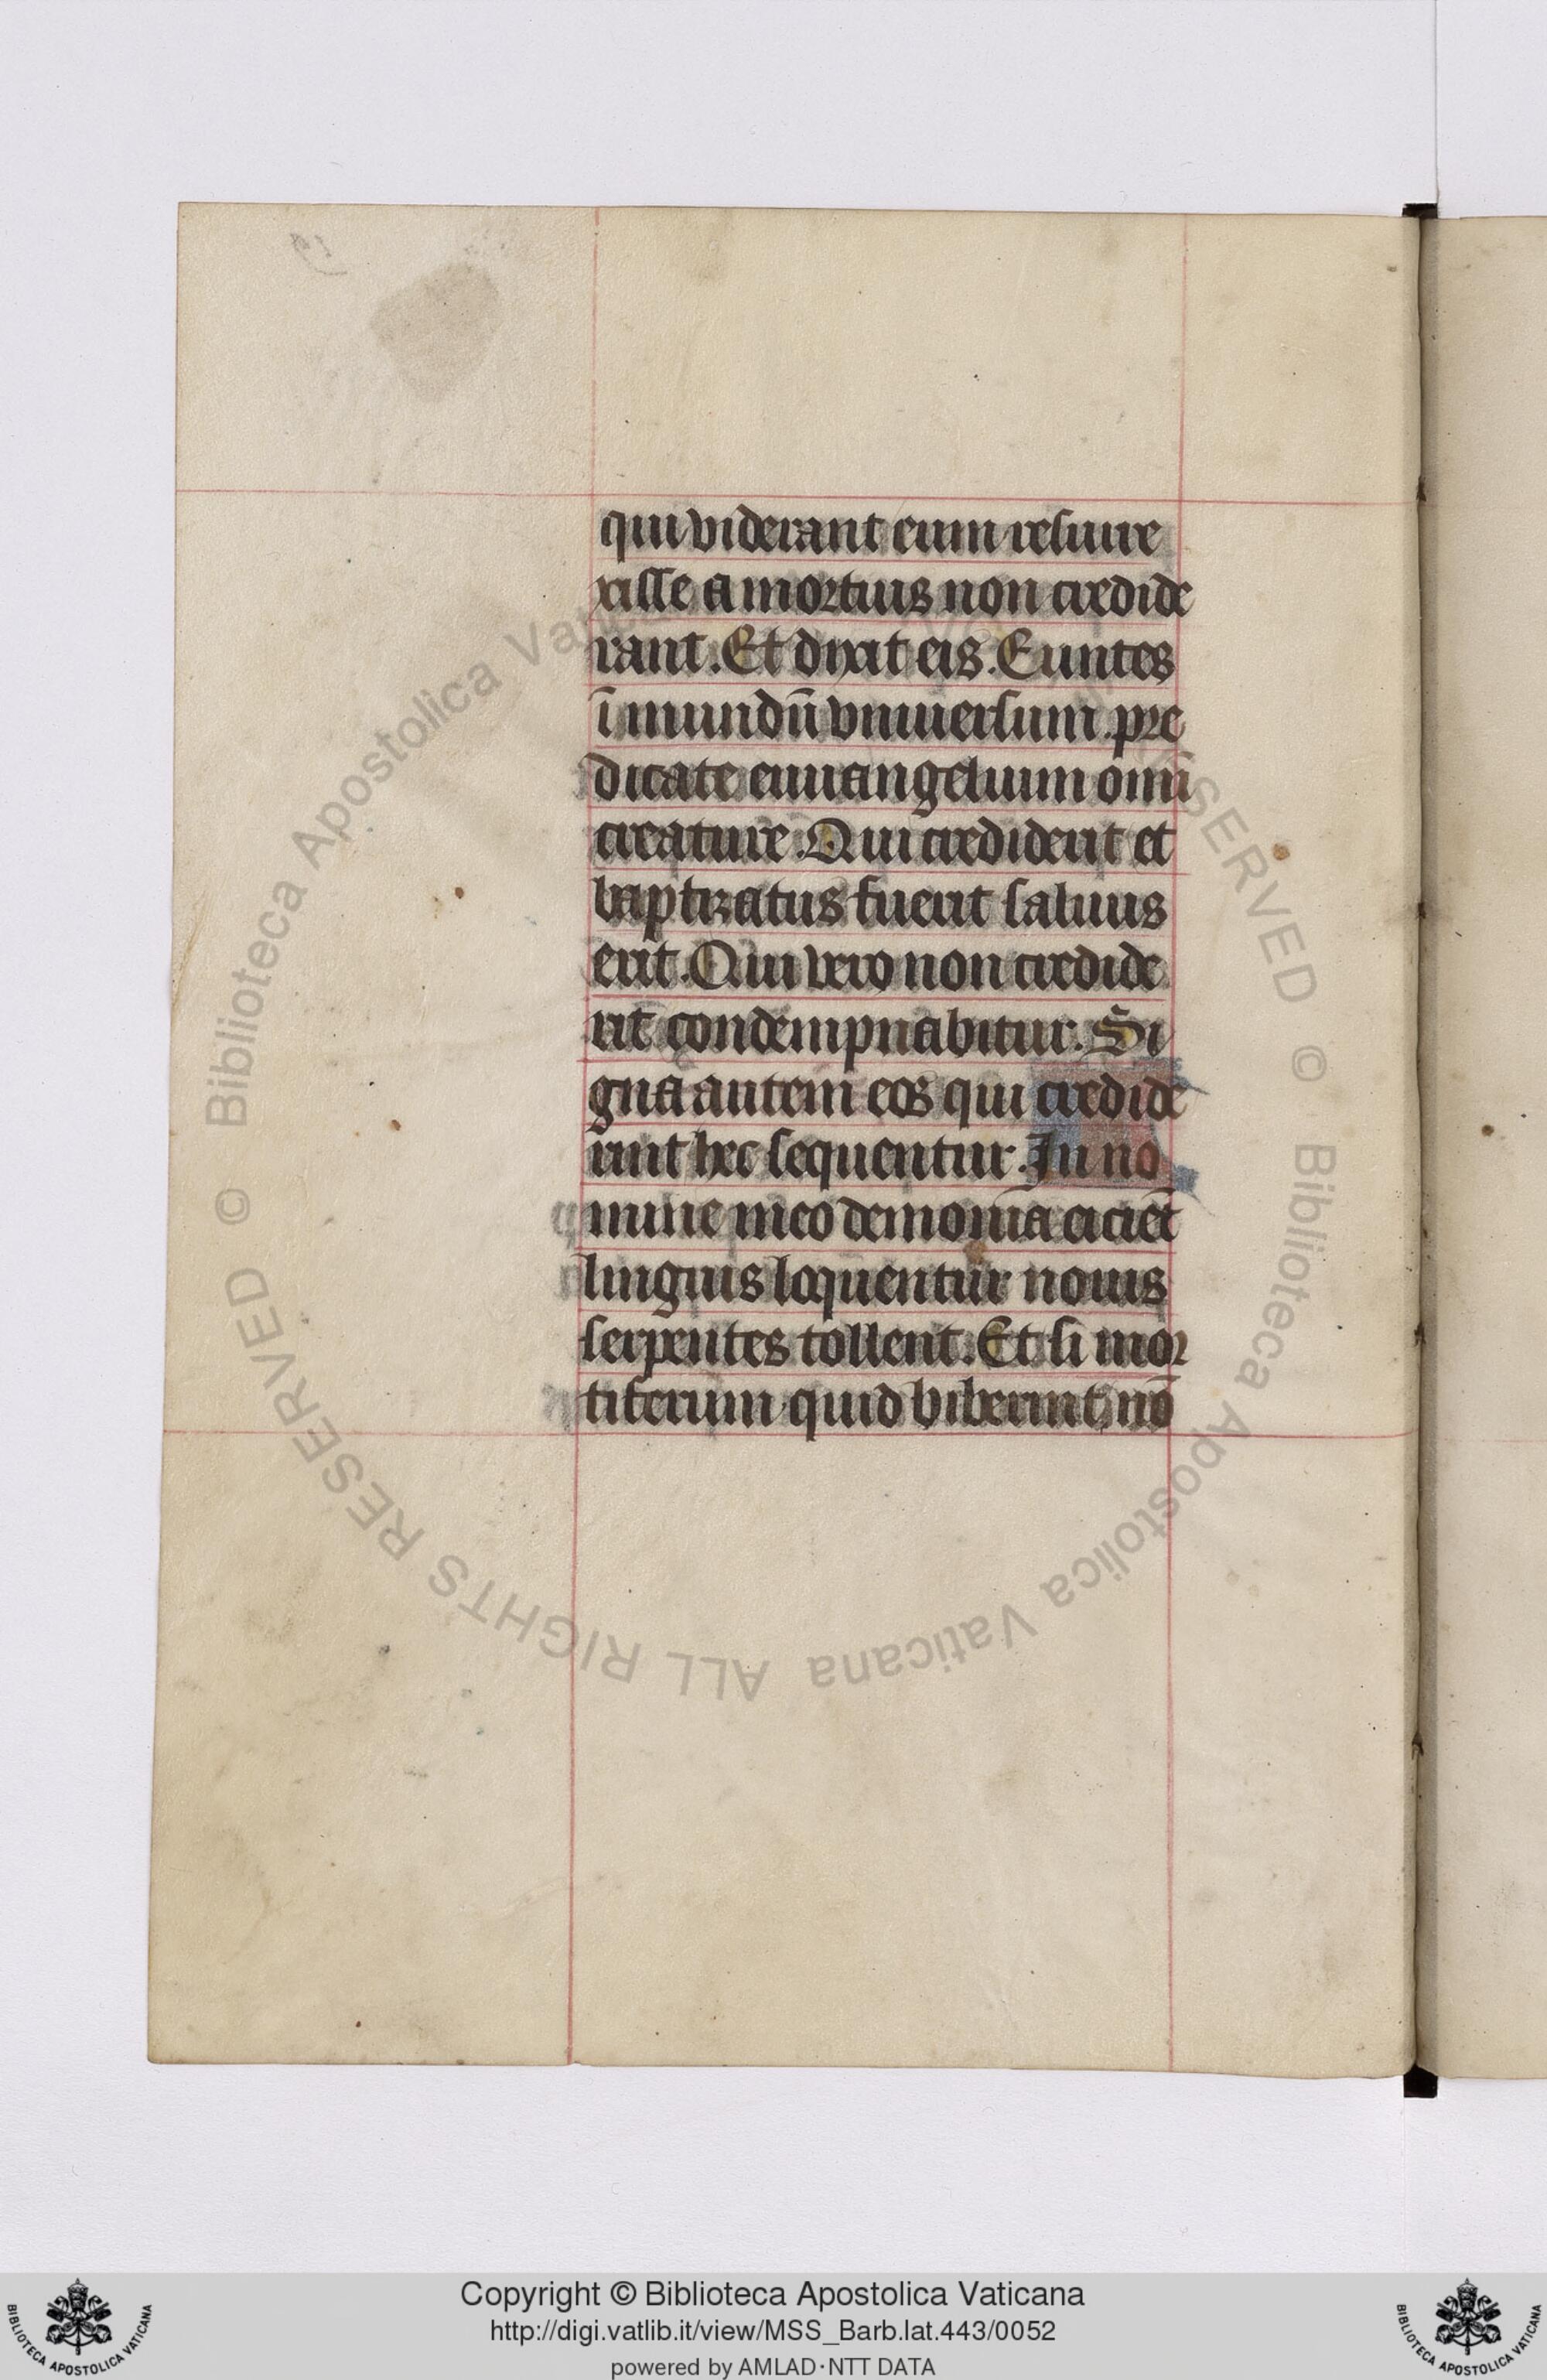 qui viderant eum resurre
xisse a mortuis non credide
rant. Et dixit eis. Euntes
ī mundū vniuersum pre
dicate euuangelium omni
creature. Qui crediderit et
baptizatus fuerit saluus
erit. Qui vero non credide
rit condempnabitur. Si
gna autem eos qui credide
rint hec sequentur. In no
mine meo demonia eiciēt
linguis loquentur nouis
serpentes tollent. Et si mor
tiferum quid biberint nō
© Biblioteca Apostolica Vaticana ALL RIGHTS RESERVED © Biblioteca Apostolica Vaticana ALL RIGHTS RESERVED
Copyright © Biblioteca Apostolica Vaticana
http://digi.vatlib.it/view/MSS_Barb.lat.443/0052
powered by AMLAD·NTT DATA
BIBLIOTECA APOSTOLICA VATICANA
BIBLIOTECA APOSTOLICA VATICANA